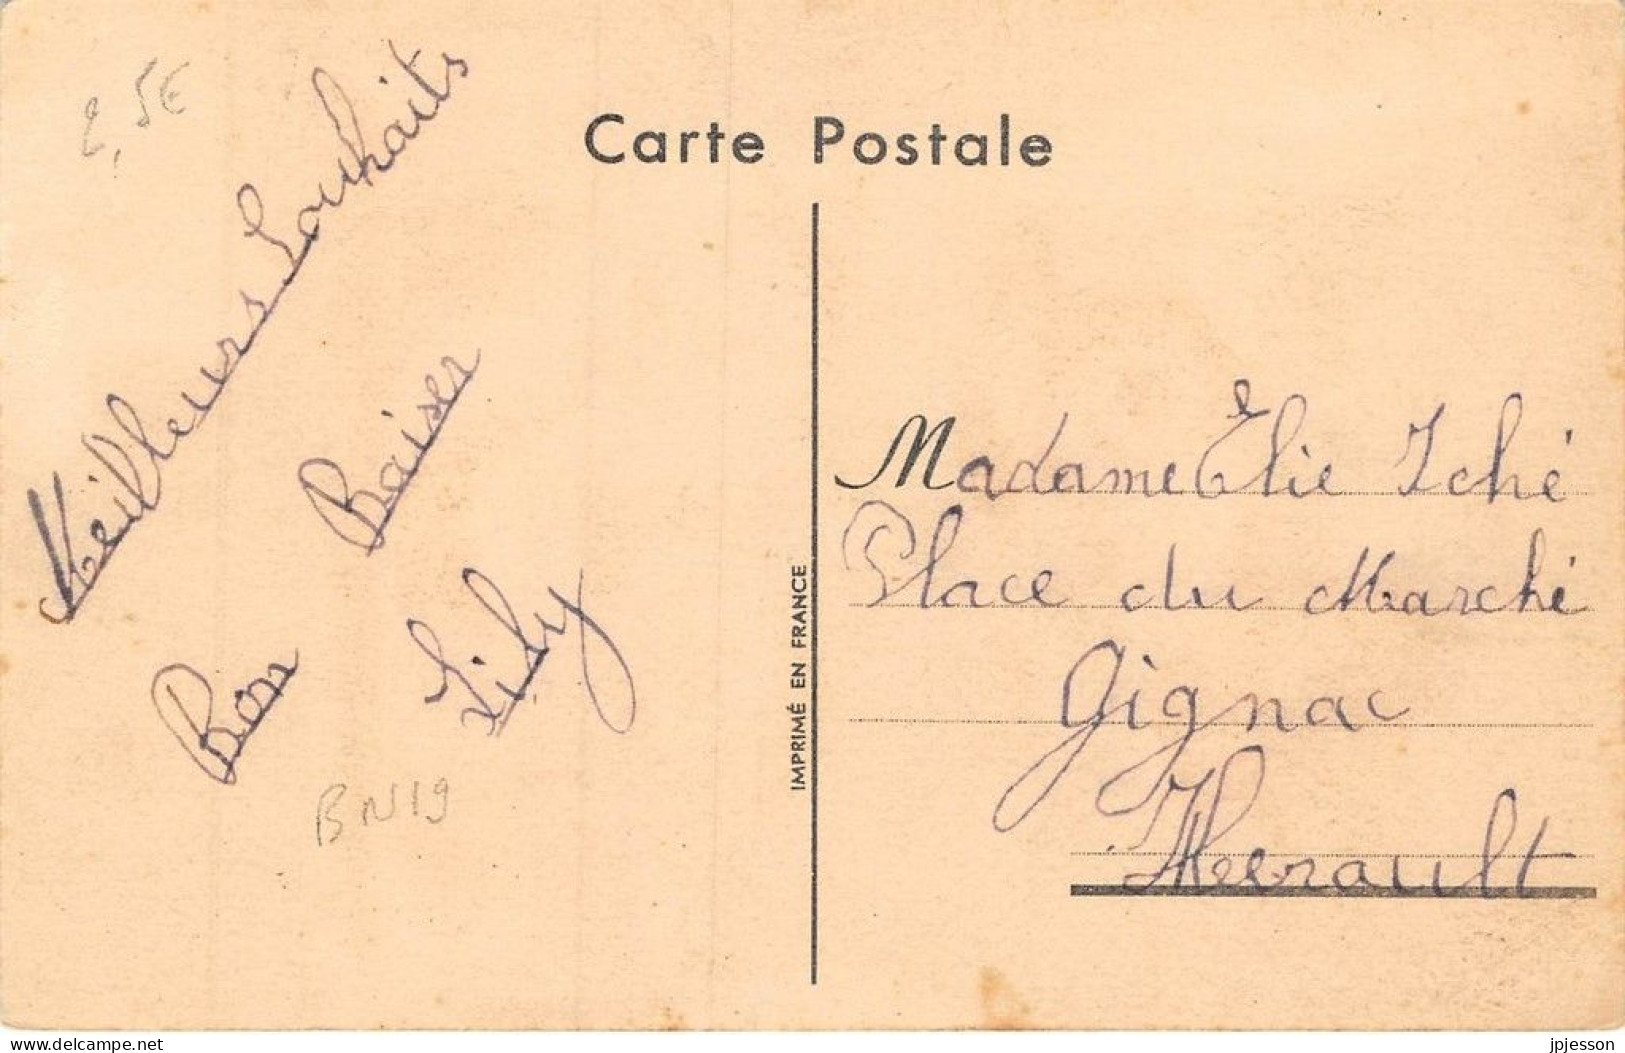 2,5€
Carte Postale
Meilleurs Souhaits
Bon Baiser
Lily
BN19
IMPRIMÉ EN FRANCE
Madame Elie Iché
Place du Marché
Gignac
Herault
delcampe.net
jpjesson